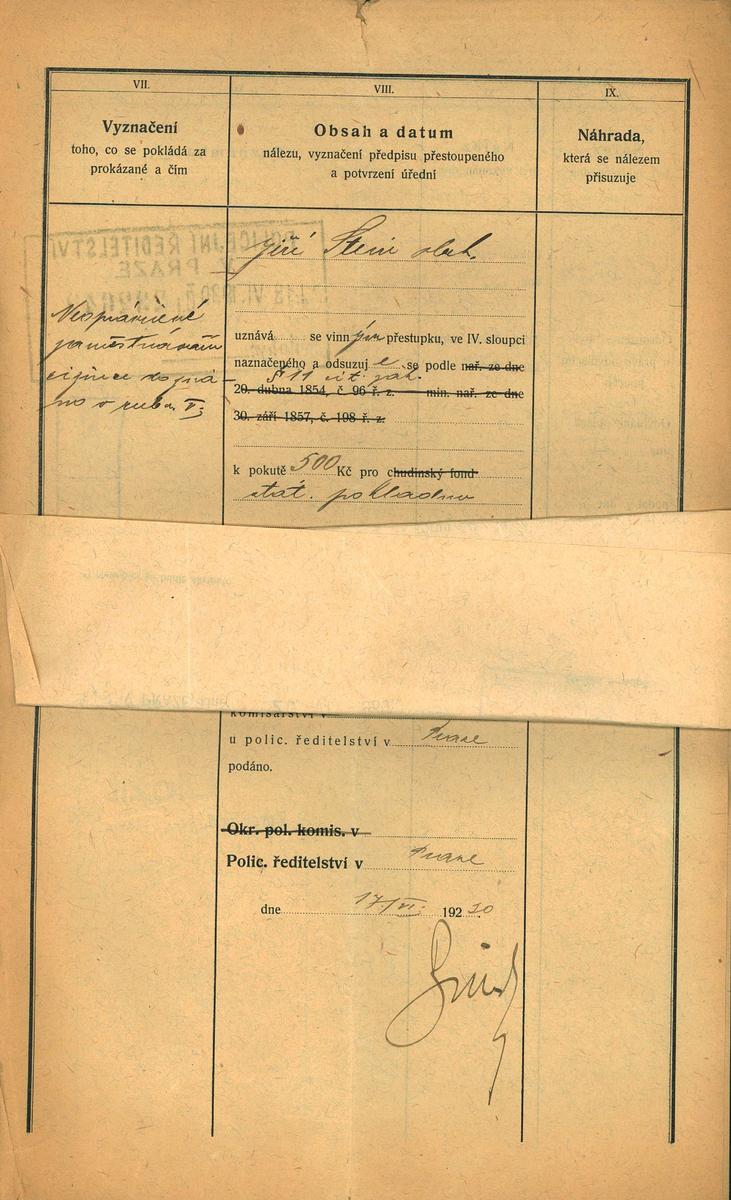 VII.
Vyznačení
toho, co se pokládá za
prokázané a čím
VIII.
Obsah a datum
nálezu, vyznačení předpisu přestoupeného
a potvrzení úřední
IX.
Náhrada,
která se nálezem
přisuzuje
POLICEJNÍ ŘEDITELSTVÍ
V PRAZE
Neoprávněné
zaměstnávání
cizince
v rubr. V:
Jiří Stein obch.
uznává se vinným přestupku, ve IV. sloupci
naznačeného a odsuzuje se podle nař. ze dne
§ 11 cit. zák.
20. dubna 1854, č. 96 ř. z. min. nař. ze dne
30. září 1857, č. 198 ř. z.
k pokutě 500 Kč pro chudinský fond
stát. pokladnu
komisařství v
u polic. ředitelství v Praze
podáno.
Okr. pol. komis. v
Polic. ředitelství v Praze
dne 17/VI. 192 30